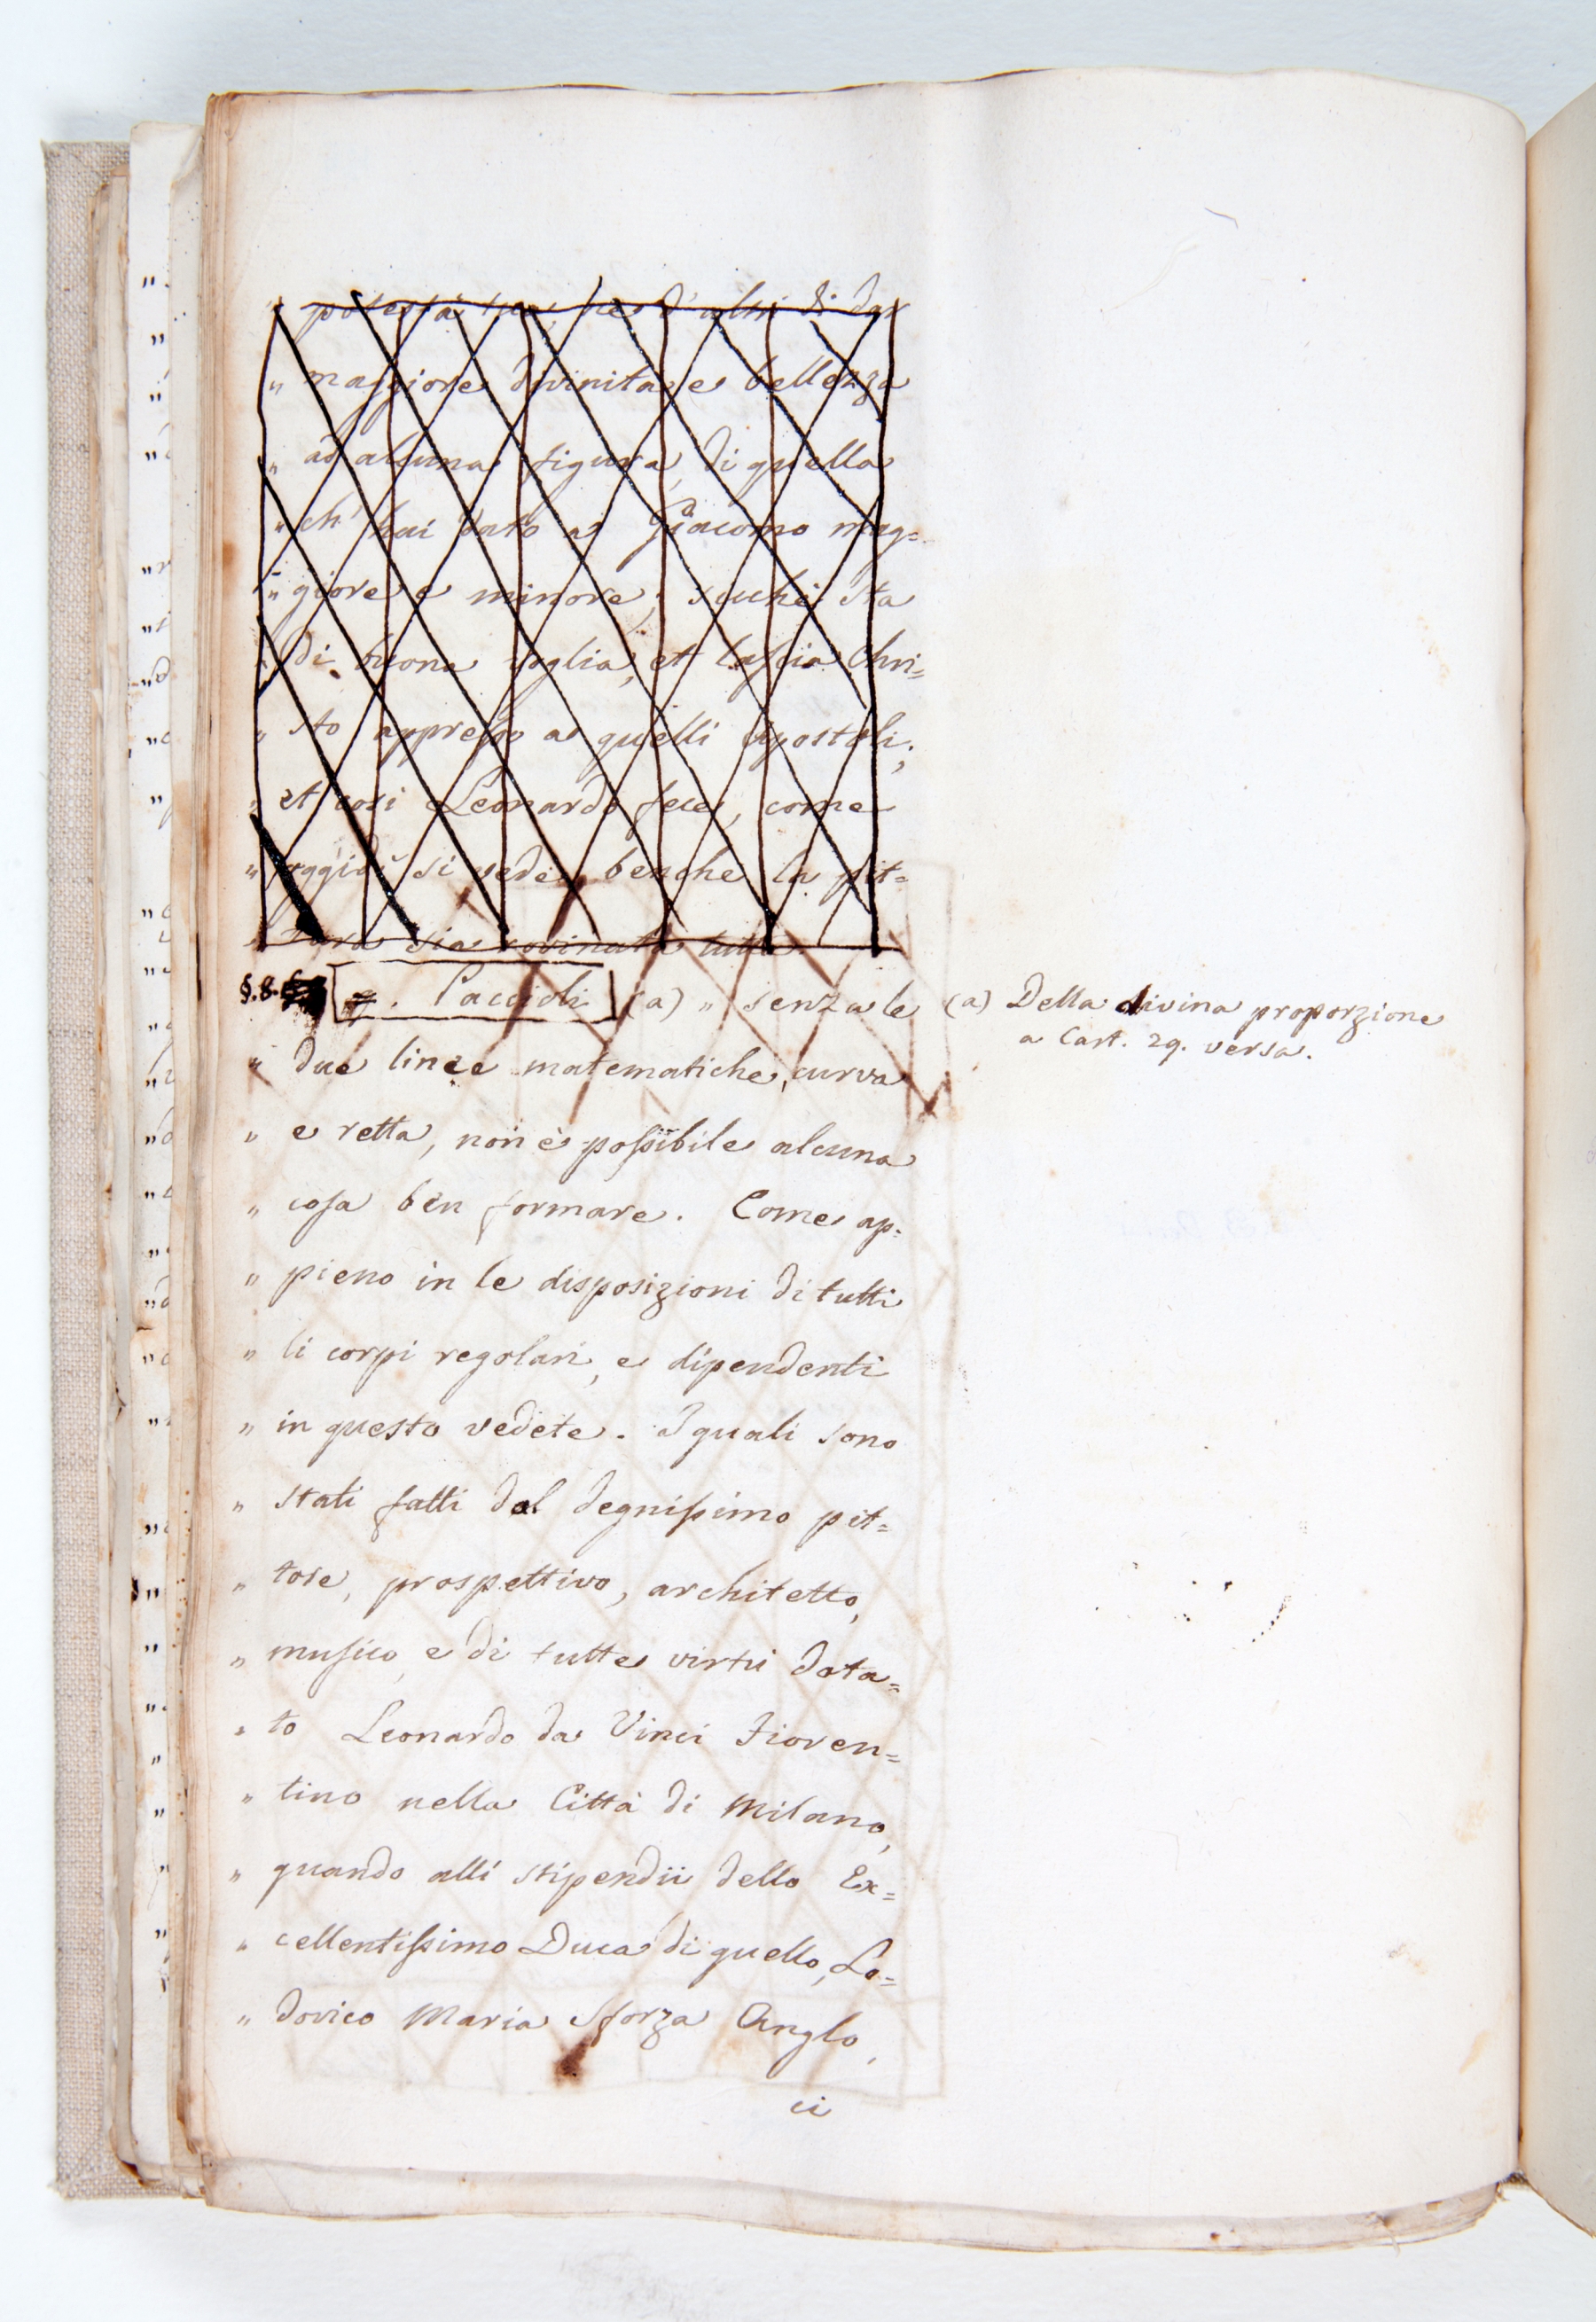 „ potestà tua, ne d'altri di dar
„ maggiore divinita e bellezza
„ ad alcuna figura, di quella
„ ch' hai dato a Giacomo mag=
„ giore e minore; sicchè sta
„ di buona voglia, et lascia Chri=
„ sto appresso a quelli Apostoli;
„ et cosi Leonardo fece, come
„ oggidì si vede, benche la pit=
„ tura sia rovinata tutta.
§. 8. Paccioli (a) „ senza le
„ due linee matematiche, curva
„ e retta, non è possibile alcuna
„ cosa ben formare. Come ap=
„ pieno in le disposizioni di tutti
„ li corpi regolari, e dipendenti
„ in questo vedete. I quali sono
„ stati fatti dal degnissimo pit=
„ tore, prospettivo, architetto,
„ musico, e di tutte virtù dota=
„ to Leonardo da Vinci Fioren=
„ tino nella Città di Milano,
„ quando alli stipendii dello Ex=
„ cellentissimo Duca di quello, Lo=
„ dovico Maria Sforza Anglo,
ci
(a) Della divina proporzione
a Cart. 29. versa.